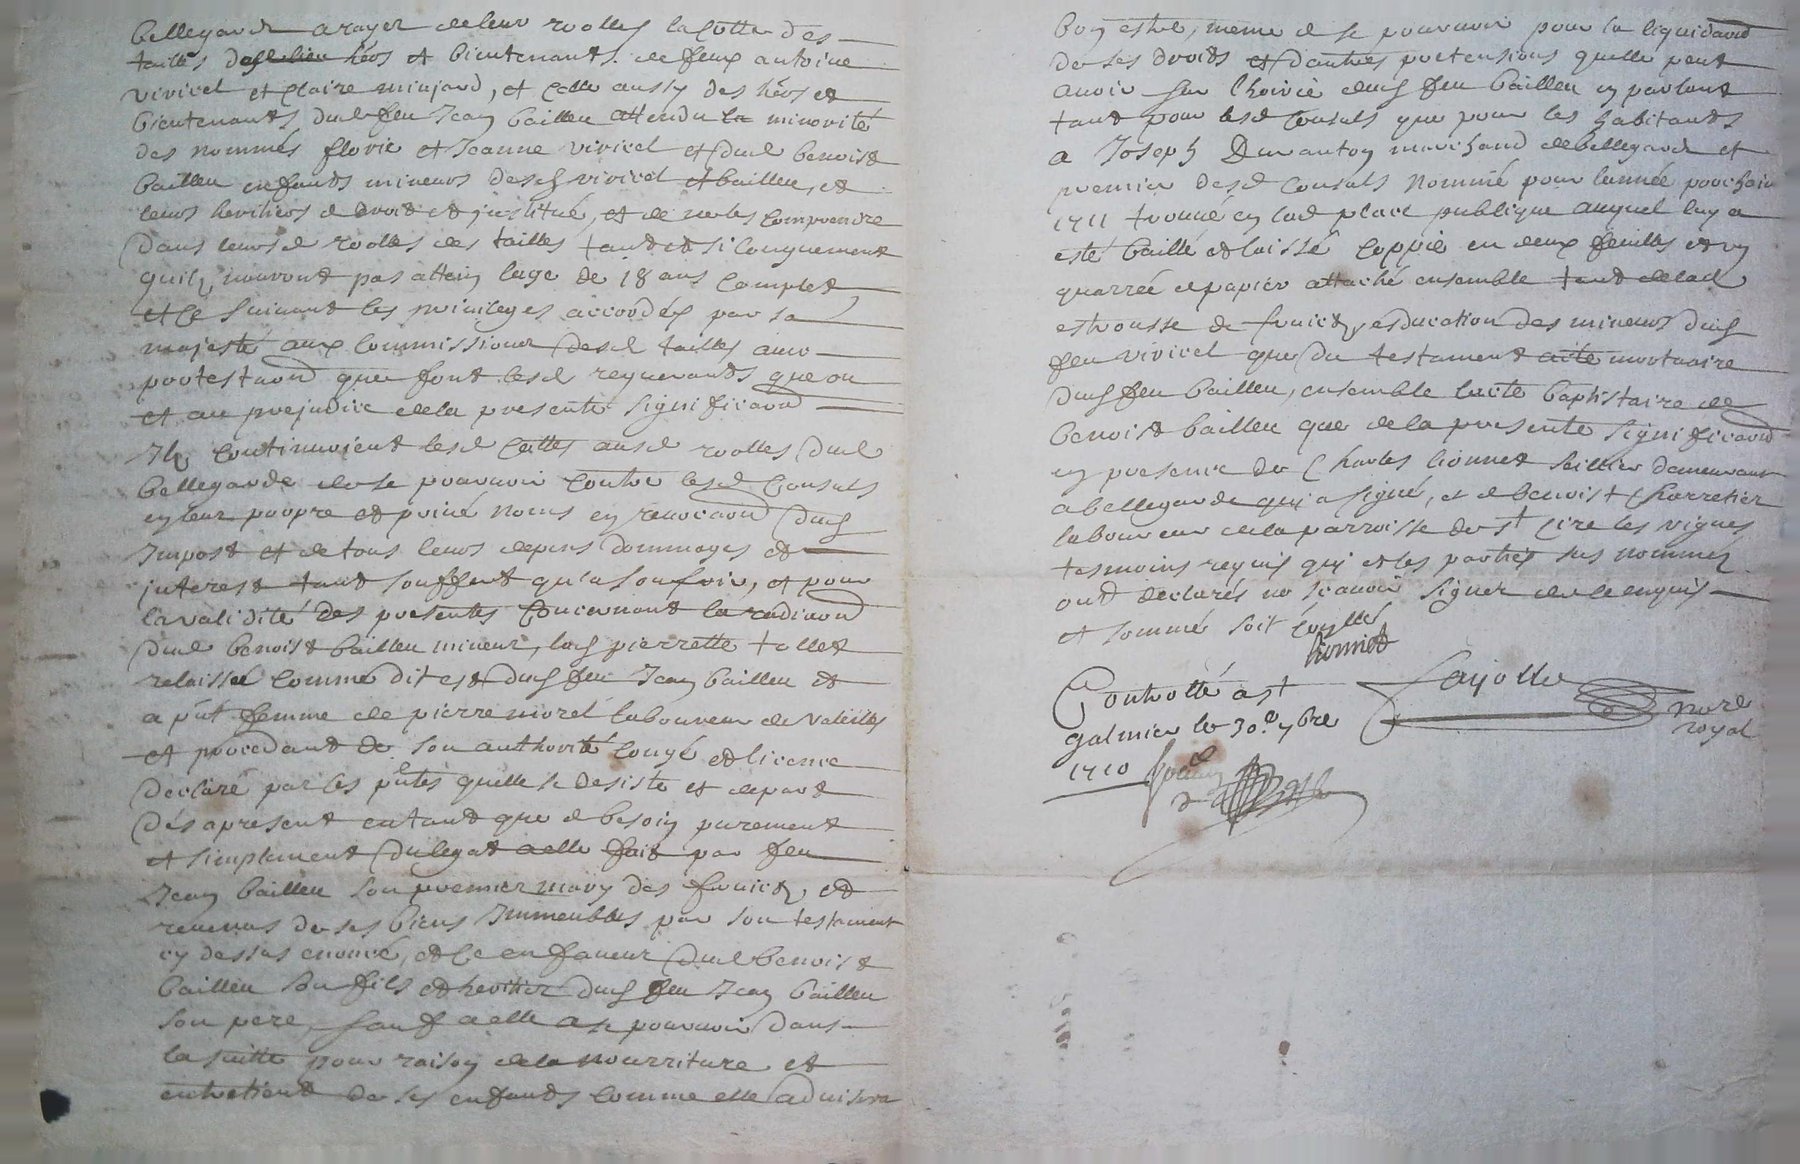 bellegarde a rayer de leur roolles la cotte des
tailles desd hers et bientenants de feux antoine
vivicel et claire minjard, et celle aussy des hers et
bientenants dud feu Jean bailleu attendu la minorité
des nommés florie et Jeanne vivicel et dud benoist
bailleu enfants mineurs desd vivicel et bailleu, et
leurs heritiers de droit et institué, et de ne les comprendre
dans leursd roolles des tailles tant et si longuement
quils nauront pas attein lage de 18 ans complet
et ce suivant les privileges accordés par sa
majesté aux commissions desd tailles avec
protestaon que font lesd requerants que ou
et au prejudice de la presente signiffica​on
Ils continuoient lesd cottes ausd roolles dud
bellegarde de se pourvoir contre lesd Consuls
en leur propre et privé noms en revocaon dud
Impost et de tous leurs depens dommages et
interest tant souffert qu'a soufrir, et pour
la validité des presentes concernant la radiaon
dud benoist bailleu mineur, lad pierrette tollet
relaissée comme dit est dud feu Jean bailleu et
a pnt femme de pierre morel laboureur de valeilles
et procedant de son authorité congé et licence
declare par les pntes quelle se desiste et depart
des apresent entant que de besoin purement
et simplement du legat a elle fait par feu
Jean bailleu son premier mary des fruicts et
revenus de ses biens Immeubles par son testament
cy dessus enoncé, et ce en faveur dud benoist
bailleu son fils et heritier dud feu Jean bailleu
son pere, sauf a elle a se pourvoir dans
la suitte pour raison de la nourriture et
entretient de ses enfants comme elle advisera
bon estre, meme de se pourvoir pour la liquidaon
de ses droits et d'autres pretensions quelle peut
avoir sur lhoirie dud feu bailleu en parlant
tant pour lesd Consuls que pour les habitants
a Joseph Duranton marchand de bellegarde et
premier desd Consuls nommé pour lannée prochaine
1711 trouvé en lad place publique auquel luy a
esté baillé et laissé coppie en deux feuilles et un
quarrée de papier attaché ensemble tant de lad
estrousse de fruicts, esducation des mineurs dud
feu vivicel que du testament acte mortuaire
dud feu bailleu, ensemble lacte baptistaire de
benoist bailleu que de la presente signifficaon
en presence de Charles lionnet sellier demeurant
a bellegarde qui a signé, et de benoist Charretier
laboureur de la parroisse de st Cire les vignes
tesmoins requis qui et les parties sus nommés
ont declarés ne scavoir signer de ce enquis
et sommé soit conllé
lionnet
Controllé a st
galmier le 30.e 7bre
1710
Fayolle
nore
royal